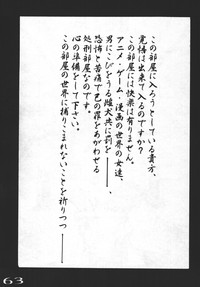 この部屋に入ろうとしている貴方、
覚悟は出来て入るのですか?
この部屋には快楽は有りません。
アニメ・ゲーム・漫画の世界の女達、
男にこびをうる雌犬共に罰を──
恐怖と苦痛で己の罪をあがわせる
処刑部屋なのです。
心の準備をして下さい。
この部屋の世界に捕りこまれないことを祈りつつ──
63